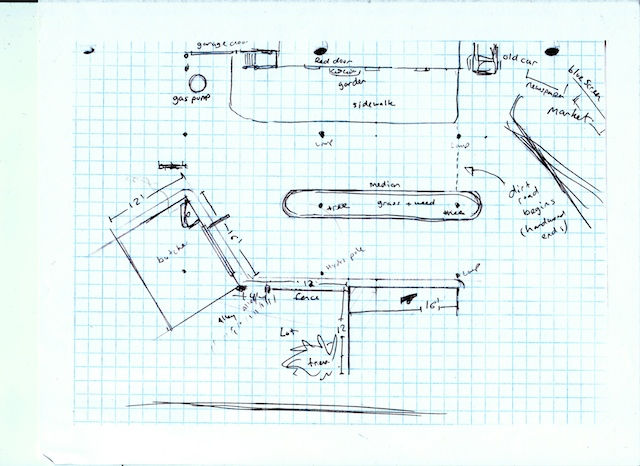 garage door
gas pump
Red door
garden
sidewalk
old car
blue screen
newsman
Market
Lamp
Lamp
median
tree
grass + weed
tree
dirt
road
begins
(hardwood
ends)
12'
16'
butcher
Lamp
12
fence
16'
Alley
Lot
12
tree